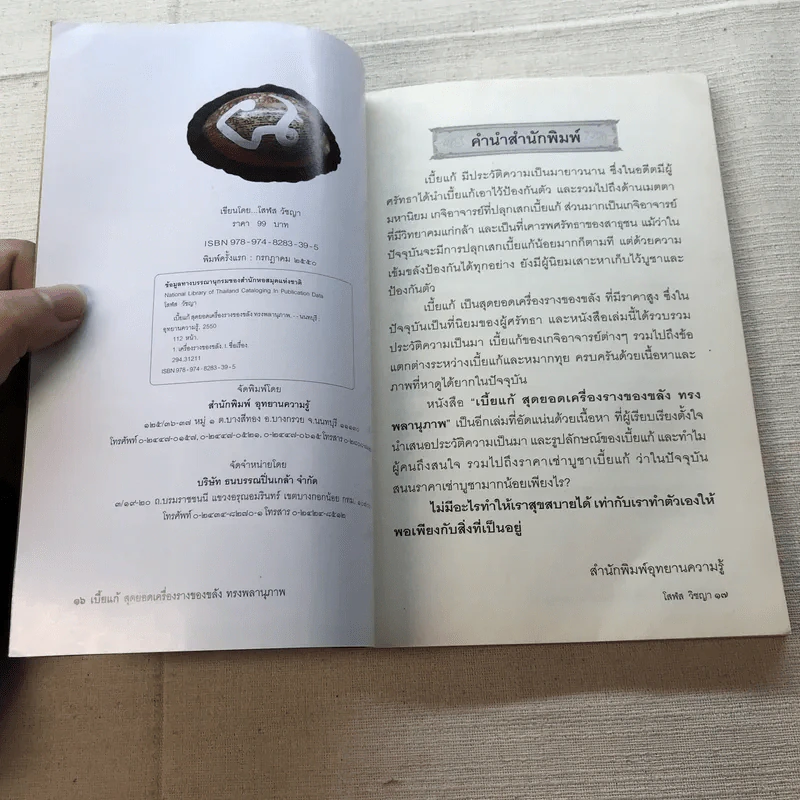 เขียนโดย...โสฬส วิชญา
ราคา 99 บาท
ISBN 978-974-8283-39-5
พิมพ์ครั้งแรก : กรกฎาคม ๒๕๕๐
ข้อมูลทางบรรณานุกรมของสำนักหอสมุดแห่งชาติ
National Library of Thailand Cataloging in Publication Data
โสฬส วิชญา
เบี้ยแก้ สุดยอดเครื่องรางของขลัง ทรงพลานุภาพ. -- นนทบุรี :
อุทยานความรู้, 2550
112 หน้า.
1. เครื่องรางของขลัง. I. ชื่อเรื่อง
294.31211
ISBN 978-974-8283-39-5
จัดพิมพ์โดย
สำนักพิมพ์ อุทยานความรู้
๑๒๕/๓๖-๓๗ หมู่ ๑ ต.บางสีทอง อ.บางกรวย จ.นนทบุรี ๑๑๑๓๐
โทรศัพท์ ๐-๒๔๔๗-๐๑๕๗, ๐-๒๔๔๗-๐๕๒๑, ๐-๒๔๔๗-๐๖๑๕ โทรสาร
จัดจำหน่ายโดย
บริษัท ธนบรรณปิ่นเกล้า จำกัด
๓/๑๙-๒๐ ถ.บรมราชชนนี แขวงอรุณอมรินทร์ เขตบางกอกน้อย กทม.
โทรศัพท์ ๐-๒๔๓๔-๘๒๗๐-๑ โทรสาร ๐-๒๔๒๔-๘๕๑๒
๑๖ เบี้ยแก้ สุดยอดเครื่องรางของขลัง ทรงพลานุภาพ
คำนำสำนักพิมพ์
เบี้ยแก้ มีประวัติความเป็นมายาวนาน ซึ่งในอดีตมีผู้
ศรัทธาได้นำเบี้ยแก้เอาไว้ป้องกันตัว และรวมไปถึงด้านเมตตา
มหานิยม เกจิอาจารย์ที่ปลุกเสกเบี้ยแก้ ส่วนมากเป็นเกจิอาจารย์
ที่มีวิทยาคมแก่กล้า และเป็นที่เคารพศรัทธาของสาธุชน แม้ว่าใน
ปัจจุบันจะมีการปลุกเสกเบี้ยแก้น้อยมากก็ตามที แต่ด้วยความ
เข้มขลังป้องกันได้ทุกอย่าง ยังมีผู้นิยมเสาะหาเก็บไว้บูชาและ
ป้องกันตัว
เบี้ยแก้ เป็นสุดยอดเครื่องรางของขลัง ที่มีราคาสูง ซึ่งใน
ปัจจุบันเป็นที่นิยมของผู้ศรัทธา และหนังสือเล่มนี้ได้รวบรวม
ประวัติความเป็นมา เบี้ยแก้ของเกจิอาจารย์ต่างๆ รวมไปถึงข้อ
แตกต่างระหว่างเบี้ยแก้และหมากทุย ครบครันด้วยเนื้อหาและ
ภาพที่หาดูได้ยากในปัจจุบัน
หนังสือ "เบี้ยแก้ สุดยอดเครื่องรางของขลัง ทรง
พลานุภาพ" เป็นอีกเล่มที่อัดแน่นด้วยเนื้อหา ที่ผู้เรียบเรียงตั้งใจ
นำเสนอประวัติความเป็นมา และรูปลักษณ์ของเบี้ยแก้ และทำไม
ผู้คนถึงสนใจ รวมไปถึงราคาเช่าบูชาเบี้ยแก้ ว่าในปัจจุบัน
สนนราคาเช่าบูชามากน้อยเพียงไร?
ไม่มีอะไรทำให้เราสุขสบายได้ เท่ากับเราทำตัวเองให้
พอเพียงกับสิ่งที่เป็นอยู่
สำนักพิมพ์อุทยานความรู้
โสฬส วิชญา ๑๗